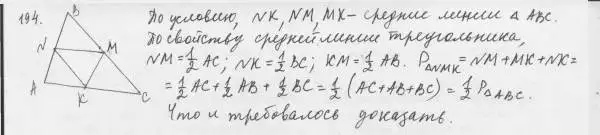 194.
B
N
M
A
K
C
По условию, NK, NM, MK – средние линии △ ABC.
По свойству средней линии треугольника,
NM = 1/2 AC; NK = 1/2 BC; KM = 1/2 AB. P△NMK = NM + MK + NK =
= 1/2 AC + 1/2 AB + 1/2 BC = 1/2 (AC + AB + BC) = 1/2 P△ABC.
Что и требовалось доказать.